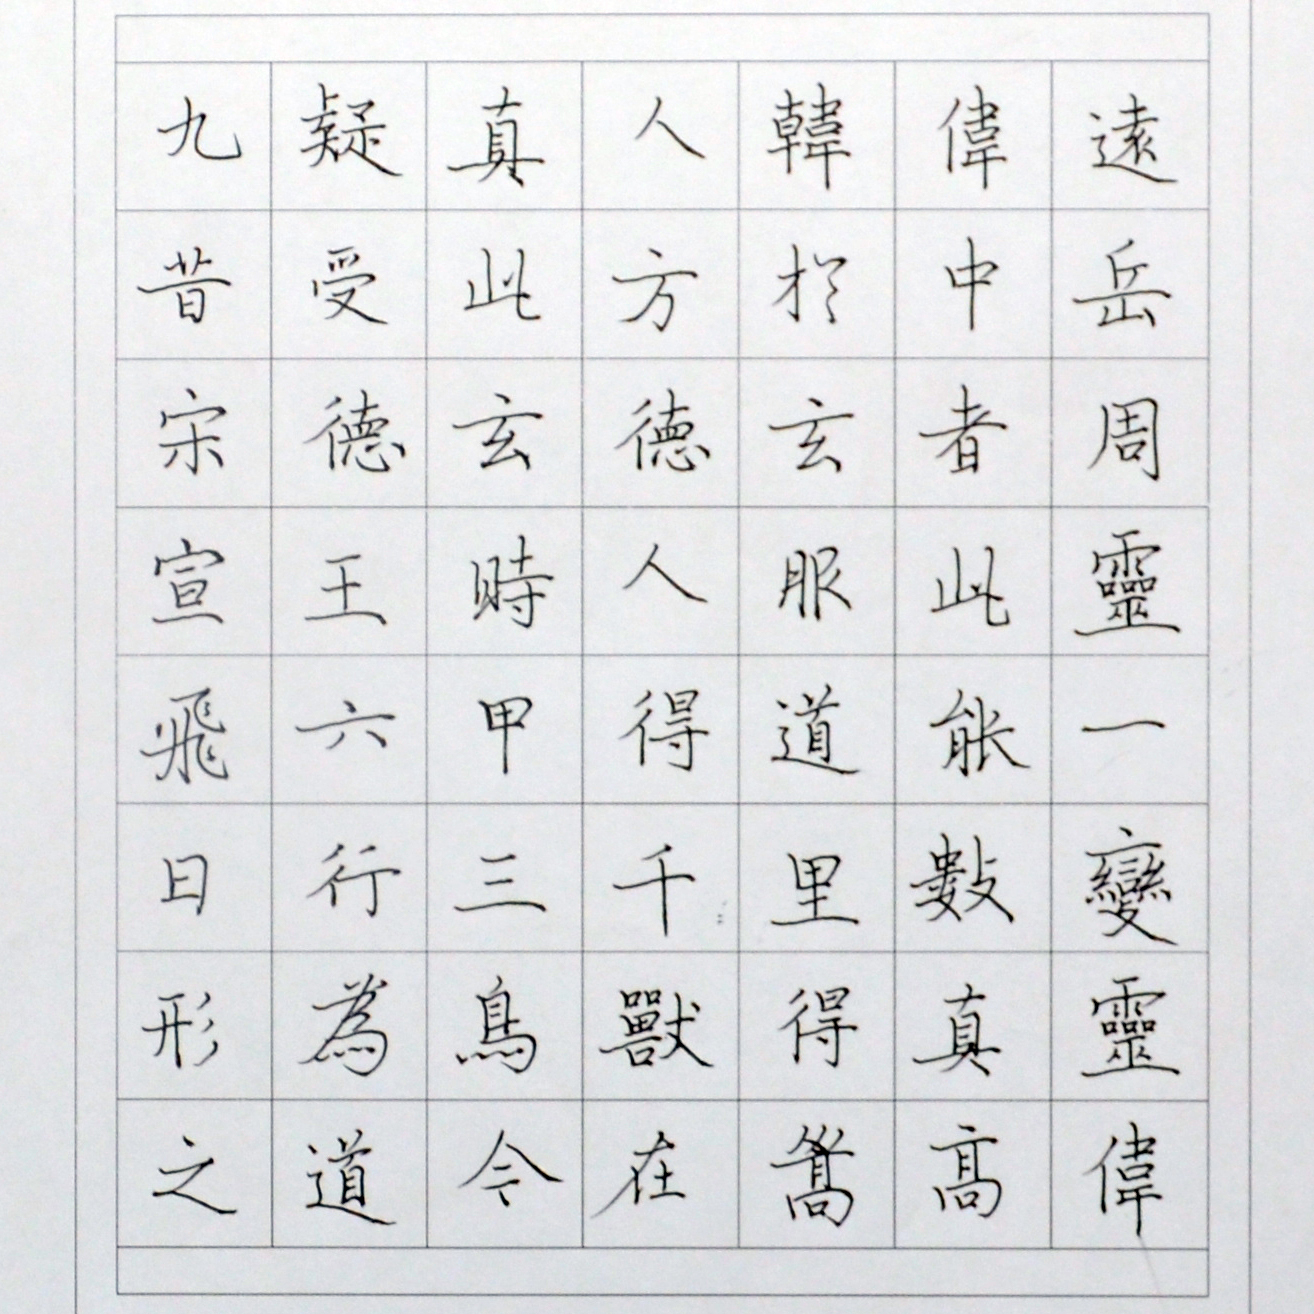 九疑真人韓偉遠
昔受此方於中岳
宋德玄德玄者周
宣王時人服此靈
飛六甲得道能一
日行三千里數變
形為鳥獸得真靈
之道今在嵩髙偉